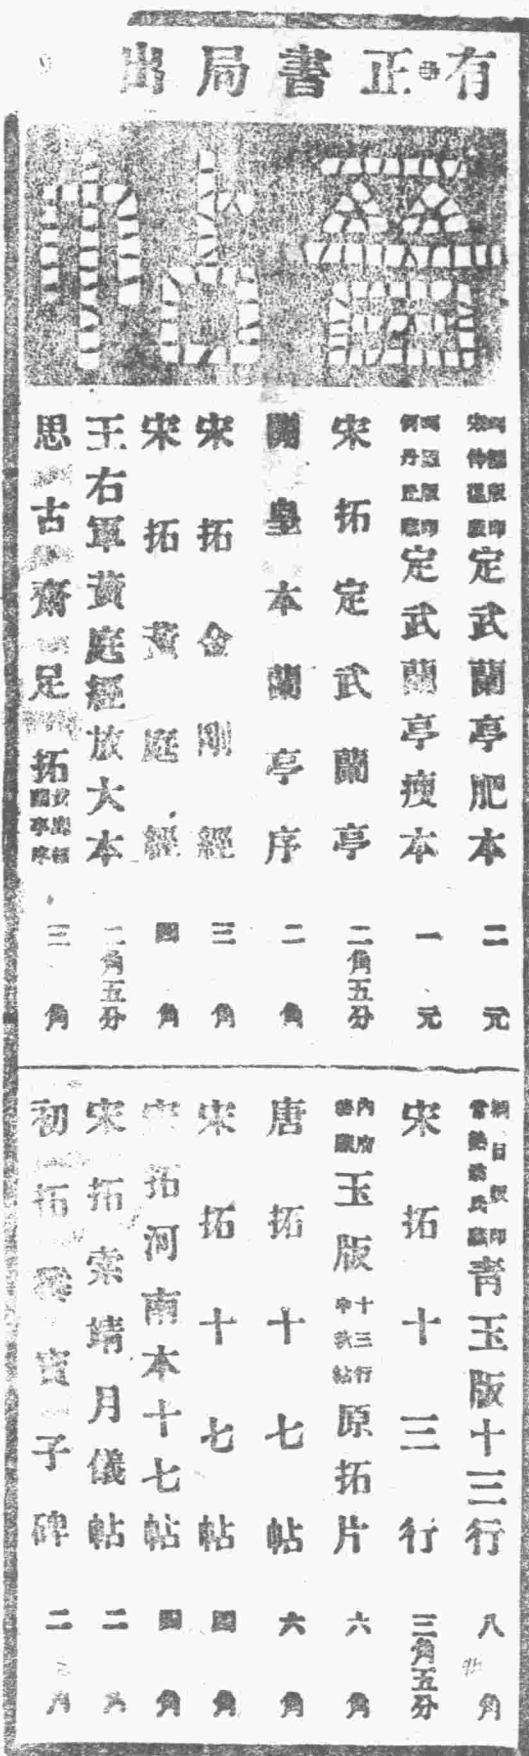 有正書局出
晉唐小楷
珂羅版印
宋仲溫藏
定武蘭亭肥本 二元
珂羅版印
何丹丘藏
定武蘭亭瘦本 一元
宋拓定武蘭亭 二角五分
開皇本蘭亭序 二角
宋拓金剛經 三角
宋拓黃庭經 四角
王右軍黃庭經放大本 二角五分
思古齋足拓
黃庭經
蘭亭序
三角
青玉版十三行 八角
宋拓十三行 三角五分
內府
玉版
十三行
原拓片 六角
唐拓十七帖 六角
宋拓十七帖 四角
宋拓河南本十七帖 四角
宋拓索靖月儀帖 二角
初拓爨寶子碑 二角